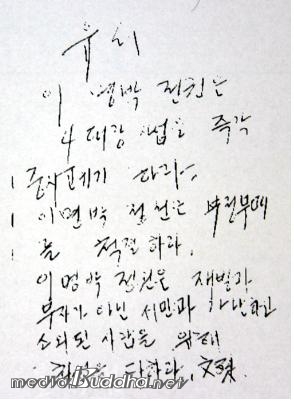 유서
이 명박 정권은
4대강 사업을 즉각
중지
이명박 정권은 부정부패
를 척결하라.
이명박 정권은 재벌과
부자가 아닌 서민과 가난하고
소외된 사람을 위해
최선을 다하라. 文殊.
media.Buddha.net